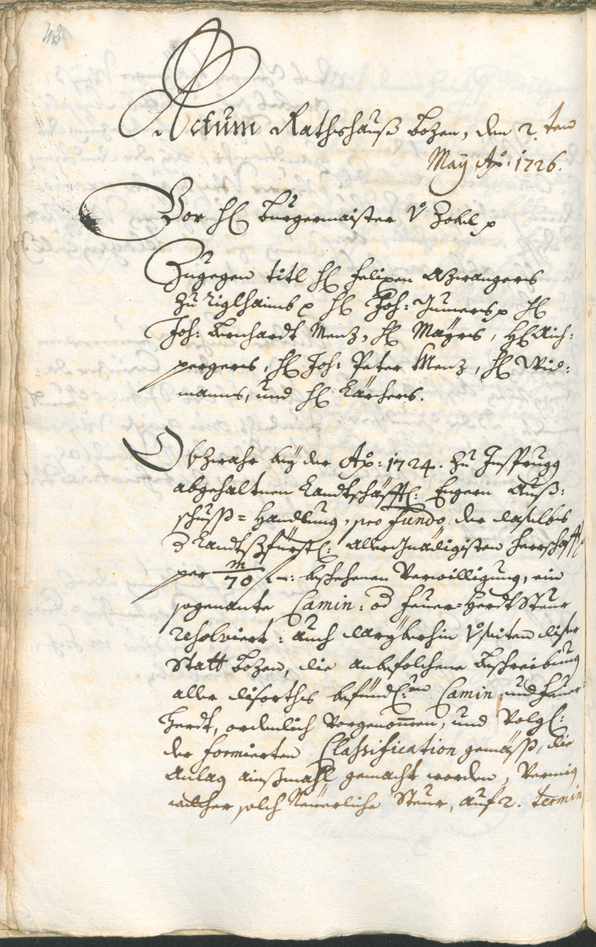 Actum Rathshauß Bozen, den 2. ten
May Ao: 1726.
Vor H: Burgermaister v Zobl p
Zugegen titl H: Felixen Azwangers
zu Ziglhaims p H: Joh: Jumers p H:
Joh: Bernhardt Menz, H: Mayrs, H: Aich:
pergers, H: Joh: Peter Menz, H: Wid:
manns, und H: Karchers.
Obzwahr bey der Ao: 1724. zu Insprugg
abgehaltnen Landtschäfftl: Engern Auß:
schuß = Handlung, pro fundo der daselbs
d Landtsfürstl: allergnädigisten Herrschafft
per m/70 f -: beschehenen Verwilligung, ein
sogenante Camin: od Feuer=Herdt Steur
resolviert: auch daryberhin v seiten diser
Statt Bozen, die anbefolchene Beschreibung
aller diserorths befündl:en Camin und Feuer
Herdt, ordenlich vorgenommen, und volgl:
der formierten Classification gemäß, die
Anlag außmahl gemacht worden, Vermig
welcher solch Neuerliche Steur, auf 2. termin